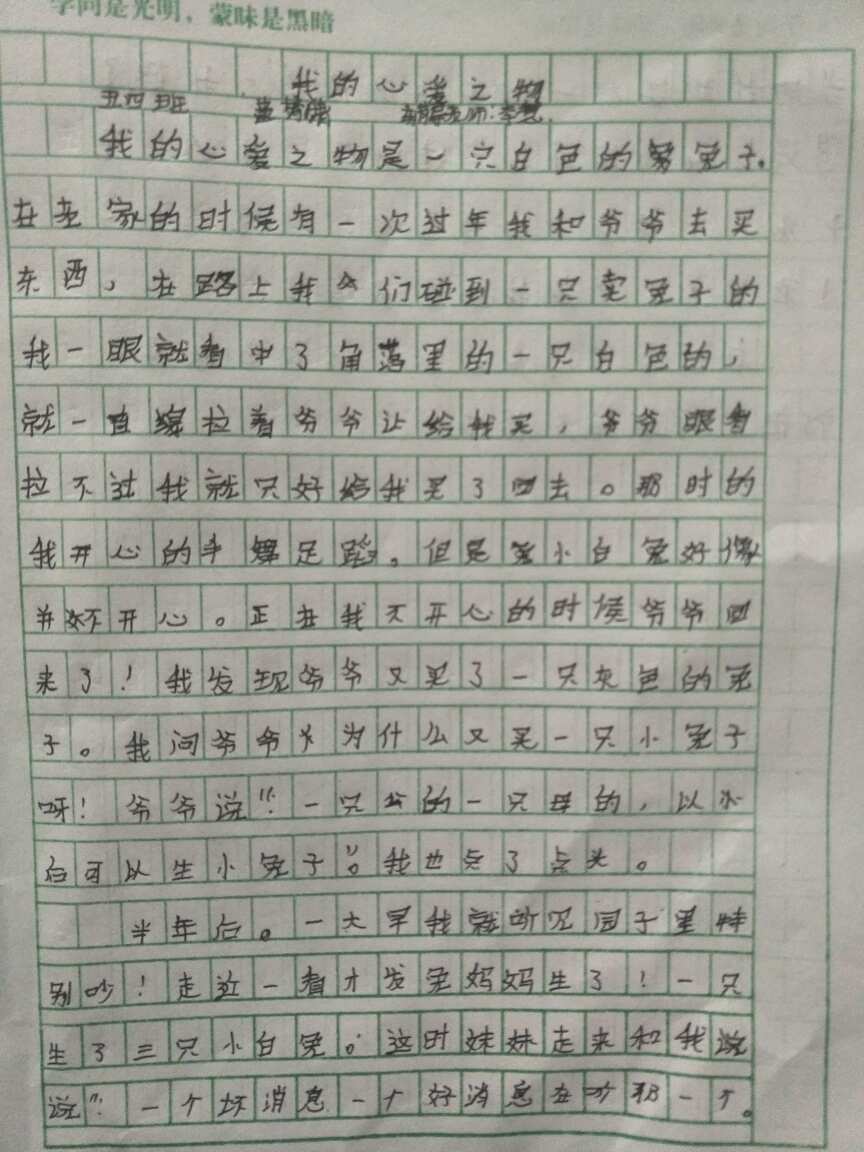 学问是光明，蒙昧是黑暗
我的心爱之物
五四班 指导老师：李
我的心爱之物是一只白色的兔子。
在老家的时候有一次过年我和爷爷去买
东西，在路上我们碰到一只卖兔子的
我一眼就看中了角落里的一只白色的，
就一直拉着爷爷让给我买，爷爷眼看
拉不过我就只好给我买了回去。那时的
我开心的手舞足蹈。但是小白兔好像
并不开心。正在我不开心的时候爷爷回
来了！我发现爷爷又买了一只灰色的兔
子。我问爷爷为什么又买一只小兔子
呀！爷爷说：“一只公的一只母的，以
后可以生小兔子”。我也点了点头。
半年后。一大早我就听见园子里特
别吵！走近一看才发兔妈妈生了！一只
生了三只小白兔。这时妹妹走来和我说
说：“一个坏消息一个好消息在听那一个。